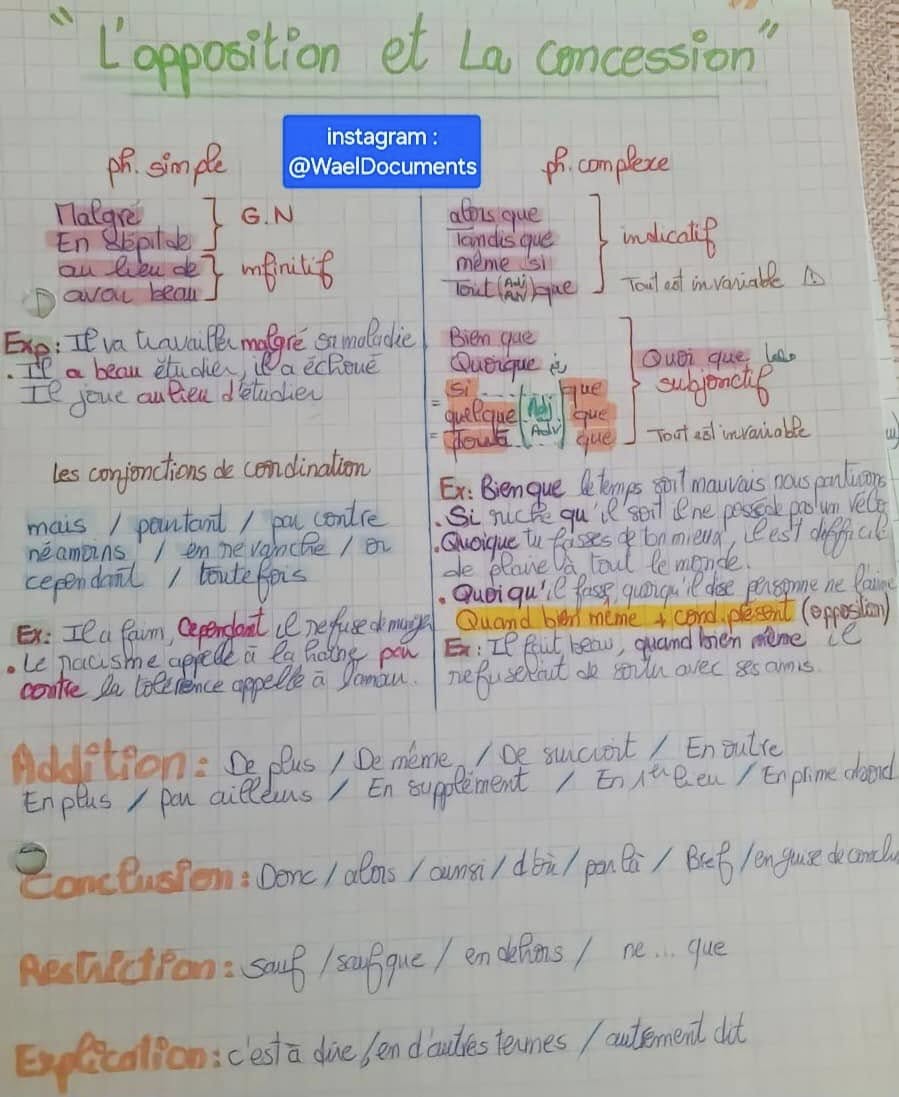 "L'opposition et La concession"
instagram :
@WaelDocuments
ph. simple
Malgré
En dépit de
G.N
au lieu de
avoir beau
infinitif
Exp: Il va travailler malgré sa maladie
. Il a beau étudier, il a échoué
Il joue au lieu d'étudier
les conjonctions de coordination
mais / pourtant / par contre
néamoins / en revanche / or
cependant / toutefois
Ex: Il a faim, Cependant il refuse de manger
. Le racisme appelle à la haine par
contre la tolérence appelle à l'amour.
ph. complexe
alors que
tandis que
même si
Tout (Adj Adv) que
indicatif
Tout est invariable
Bien que
Quoique
Si
= quelque
= Tout
Adj
Adv
que
que
que
Quoi que
subjonctif
Tout est invariable
Ex: Bien que le temps soit mauvais nous partirons
. Si riche qu'il soit il ne possède pas un vélo
. Quoique tu fasses de ton mieux, il est difficile
de plaire à tout le monde.
. Quoi qu'il fasse, quoiqu'il dise personne ne l'aime
Quand bien même + cond. présent (opposition)
Ex: Il fait beau, quand bien même il
refuserait de sortir avec ses amis.
Addition: De plus / De même / De surcroit / En outre
En plus / par ailleurs / En supplément / En 1er lieu / En prime abord
Conclusion: Donc / alors / ainsi / d'où / par là / Bref / en guise de conclu
Restriction: sauf / sauf que / en dehors / ne... que
Explication: c'est à dire / en d'autres termes / autrement dit